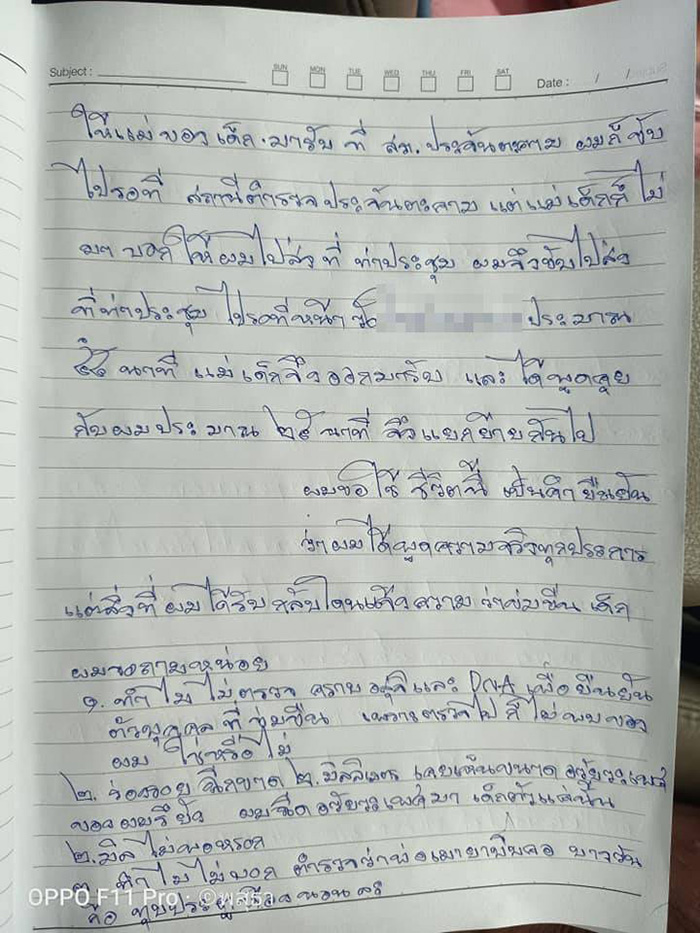 Subject :
SUN MON TUE WED THU FRI SAT
Date : / /
ให้แม่ของเด็ก มารับ ที่ สภ. ประจันตะคาม ผมก็ขับ
ไปรอที่ สถานีตำรวจประจันตะคาม แต่แม่เด็กก็ไม่
มา บอกให้ผมไปส่งที่ ท่าประชุม ผมจึงขับไปส่ง
ที่ท่าประชุม ไปรอที่หน้า ประมาณ
นาที แม่เด็กจึงออกมารับ และได้พูดคุย
กับผมประมาณ ๒๕ นาที จึงแยกย้ายกันไป
ผมขอใช้ ชีวิตนี้ เป็นคำยืนยัน
ว่าผมได้พูดความจริงทุกประการ
แต่สิ่งที่ผมได้รับกลับโดนแจ้งความว่าข่มขืน เด็ก
ผมขอถามหน่อย
๑. ทำไมไม่ตรวจ คราบอสุจิและ DNA เพื่อยืนยัน
ตัวบุคคลที่ข่มขืน เพราะตรวจไปก็ไม่พบของ
ผม ใช่หรือไม่
๒. ร่องรอย ฉีกขาด ๒. มิลลิเมตร เคยเห็นขนาดอวัยวะเพศ
ของผมรึยัง ผมฉีดอวัยวะเพศมา เด็กตัวแค่นั้น
๒. มิล ไม่พอหรอก
๓. ทำไมไม่บอก ตำรวจว่าพ่อเมายาบีบคอ บางวัน
คือ ทุบประตู ห้องนอน
OPPO F11 Pro · ©พสุธา